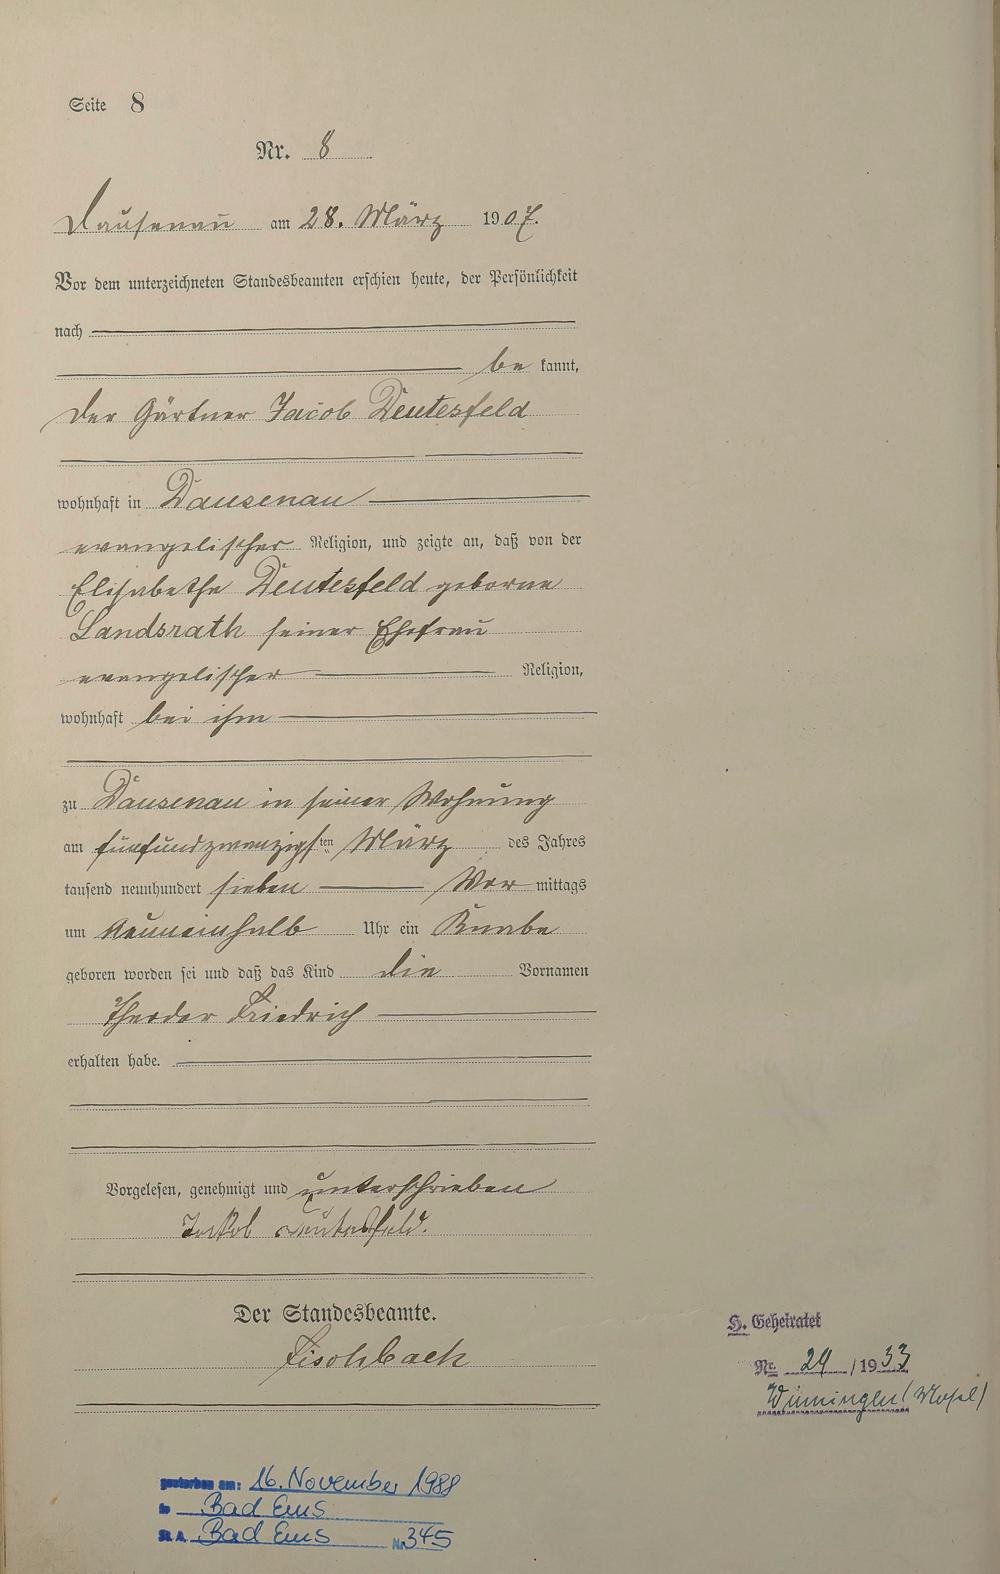 Seite 8
Nr. 8
Dausenau am 28. März 1907.
Vor dem unterzeichneten Standesbeamten erschien heute, der Persönlichkeit
nach
be kannt,
der Gärtner Jacob Deutesfeld
wohnhaft in Dausenau
evangelischer Religion, und zeigte an, daß von der
Elisabethe Deutesfeld geborne
Landsrath seiner Ehefrau
evangelischer Religion,
wohnhaft bei ihm
zu Dausenau in seiner Wohnung
am fünfundzwanzigsten März des Jahres
tausend neunhundert sieben Vor mittags
um neuneinhalb Uhr ein Knabe
geboren worden sei und daß das Kind die Vornamen
Theodor Friedrich
erhalten habe.
Vorgelesen, genehmigt und unterschrieben
Jakob Deutesfeld.
Der Standesbeamte.
Fischbach
H. Geheiratet
Nr. /1933
Winningen (Mosel)
gestorben am: 16. November 1988
in Bad Ems
St. A. Bad Ems Nr. 345